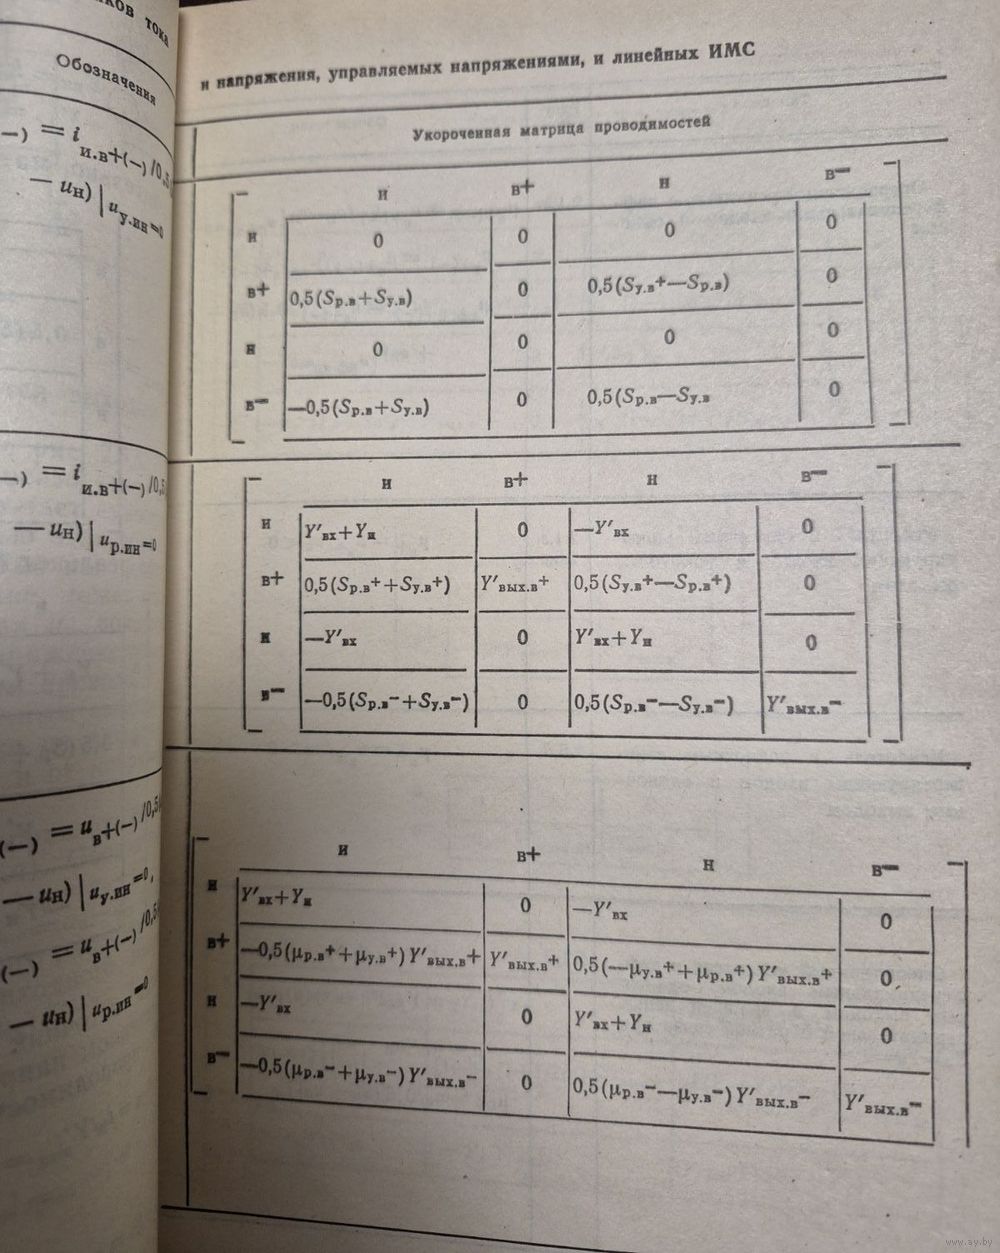 ков тока
Обозначения
—) = i и.в+(—)/0,5
— uн) | uу.ин=0
—) = i и.в+(—)/0,5
— uн) | uр.ин=0
(—) = uв+(—)/0,5
— uн) | uу.ин=0,
(—) = uв+(—)/0,5
— uн) | uр.ин=0
и напряжения, управляемых напряжениями, и линейных ИМС
Укороченная матрица проводимостей
и в+ н в—
и 0 0 0 0
в+ 0,5(Sр.в+Sу.в) 0 0,5(Sу.в+—Sр.в) 0
н 0 0 0 0
в— —0,5(Sр.в+Sу.в) 0 0,5(Sр.в—Sу.в 0
и в+ н в—
и Y′вх+Yи 0 —Y′вх 0
в+ 0,5(Sр.в++Sу.в+) Y′вых.в+ 0,5(Sу.в+—Sр.в+) 0
н —Y′вх 0 Y′вх+Yн 0
в— —0,5(Sр.в—+Sу.в—) 0 0,5(Sр.в——Sу.в—) Y′вых.в—
и в+ н в—
и Y′вх+Yи 0 —Y′вх 0
в+ —0,5(μр.в++μу.в+) Y′вых.в+ Y′вых.в+ 0,5(—μу.в++μр.в+) Y′вых.в+ 0
н —Y′вх 0 Y′вх+Yн 0
в— —0,5(μр.в—+μу.в—) Y′вых.в— 0 0,5(μр.в——μу.в—) Y′вых.в— Y′вых.в—
www.ay.by